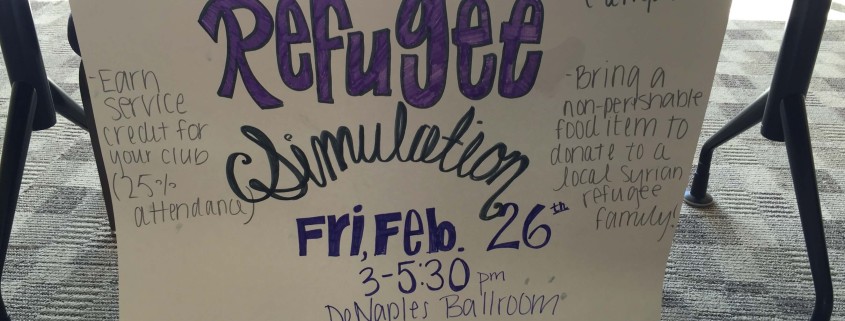 Refugee
Simulation
-Earn
service
credit for
your club
(25%
attendance)
-Bring a
non-perishable
food item to
donate to a
local Syrian
refugee
family!
Fri, Feb. 26th
3-5:30 pm
DeNaples Ballroom